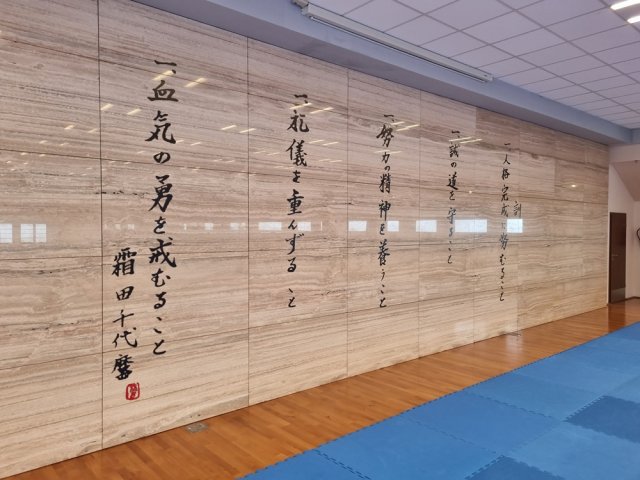 訓
一人格完成に努むること
一誠の道を守ること
一努力の精神を養うこと
一礼儀を重んずること
一血気の勇を戒むること
霜田千代麿